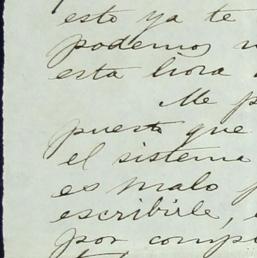 esto ya te
podemos
esta hora
Me p
puesto que
el sistema
es malo p
escribirle, e
por comp